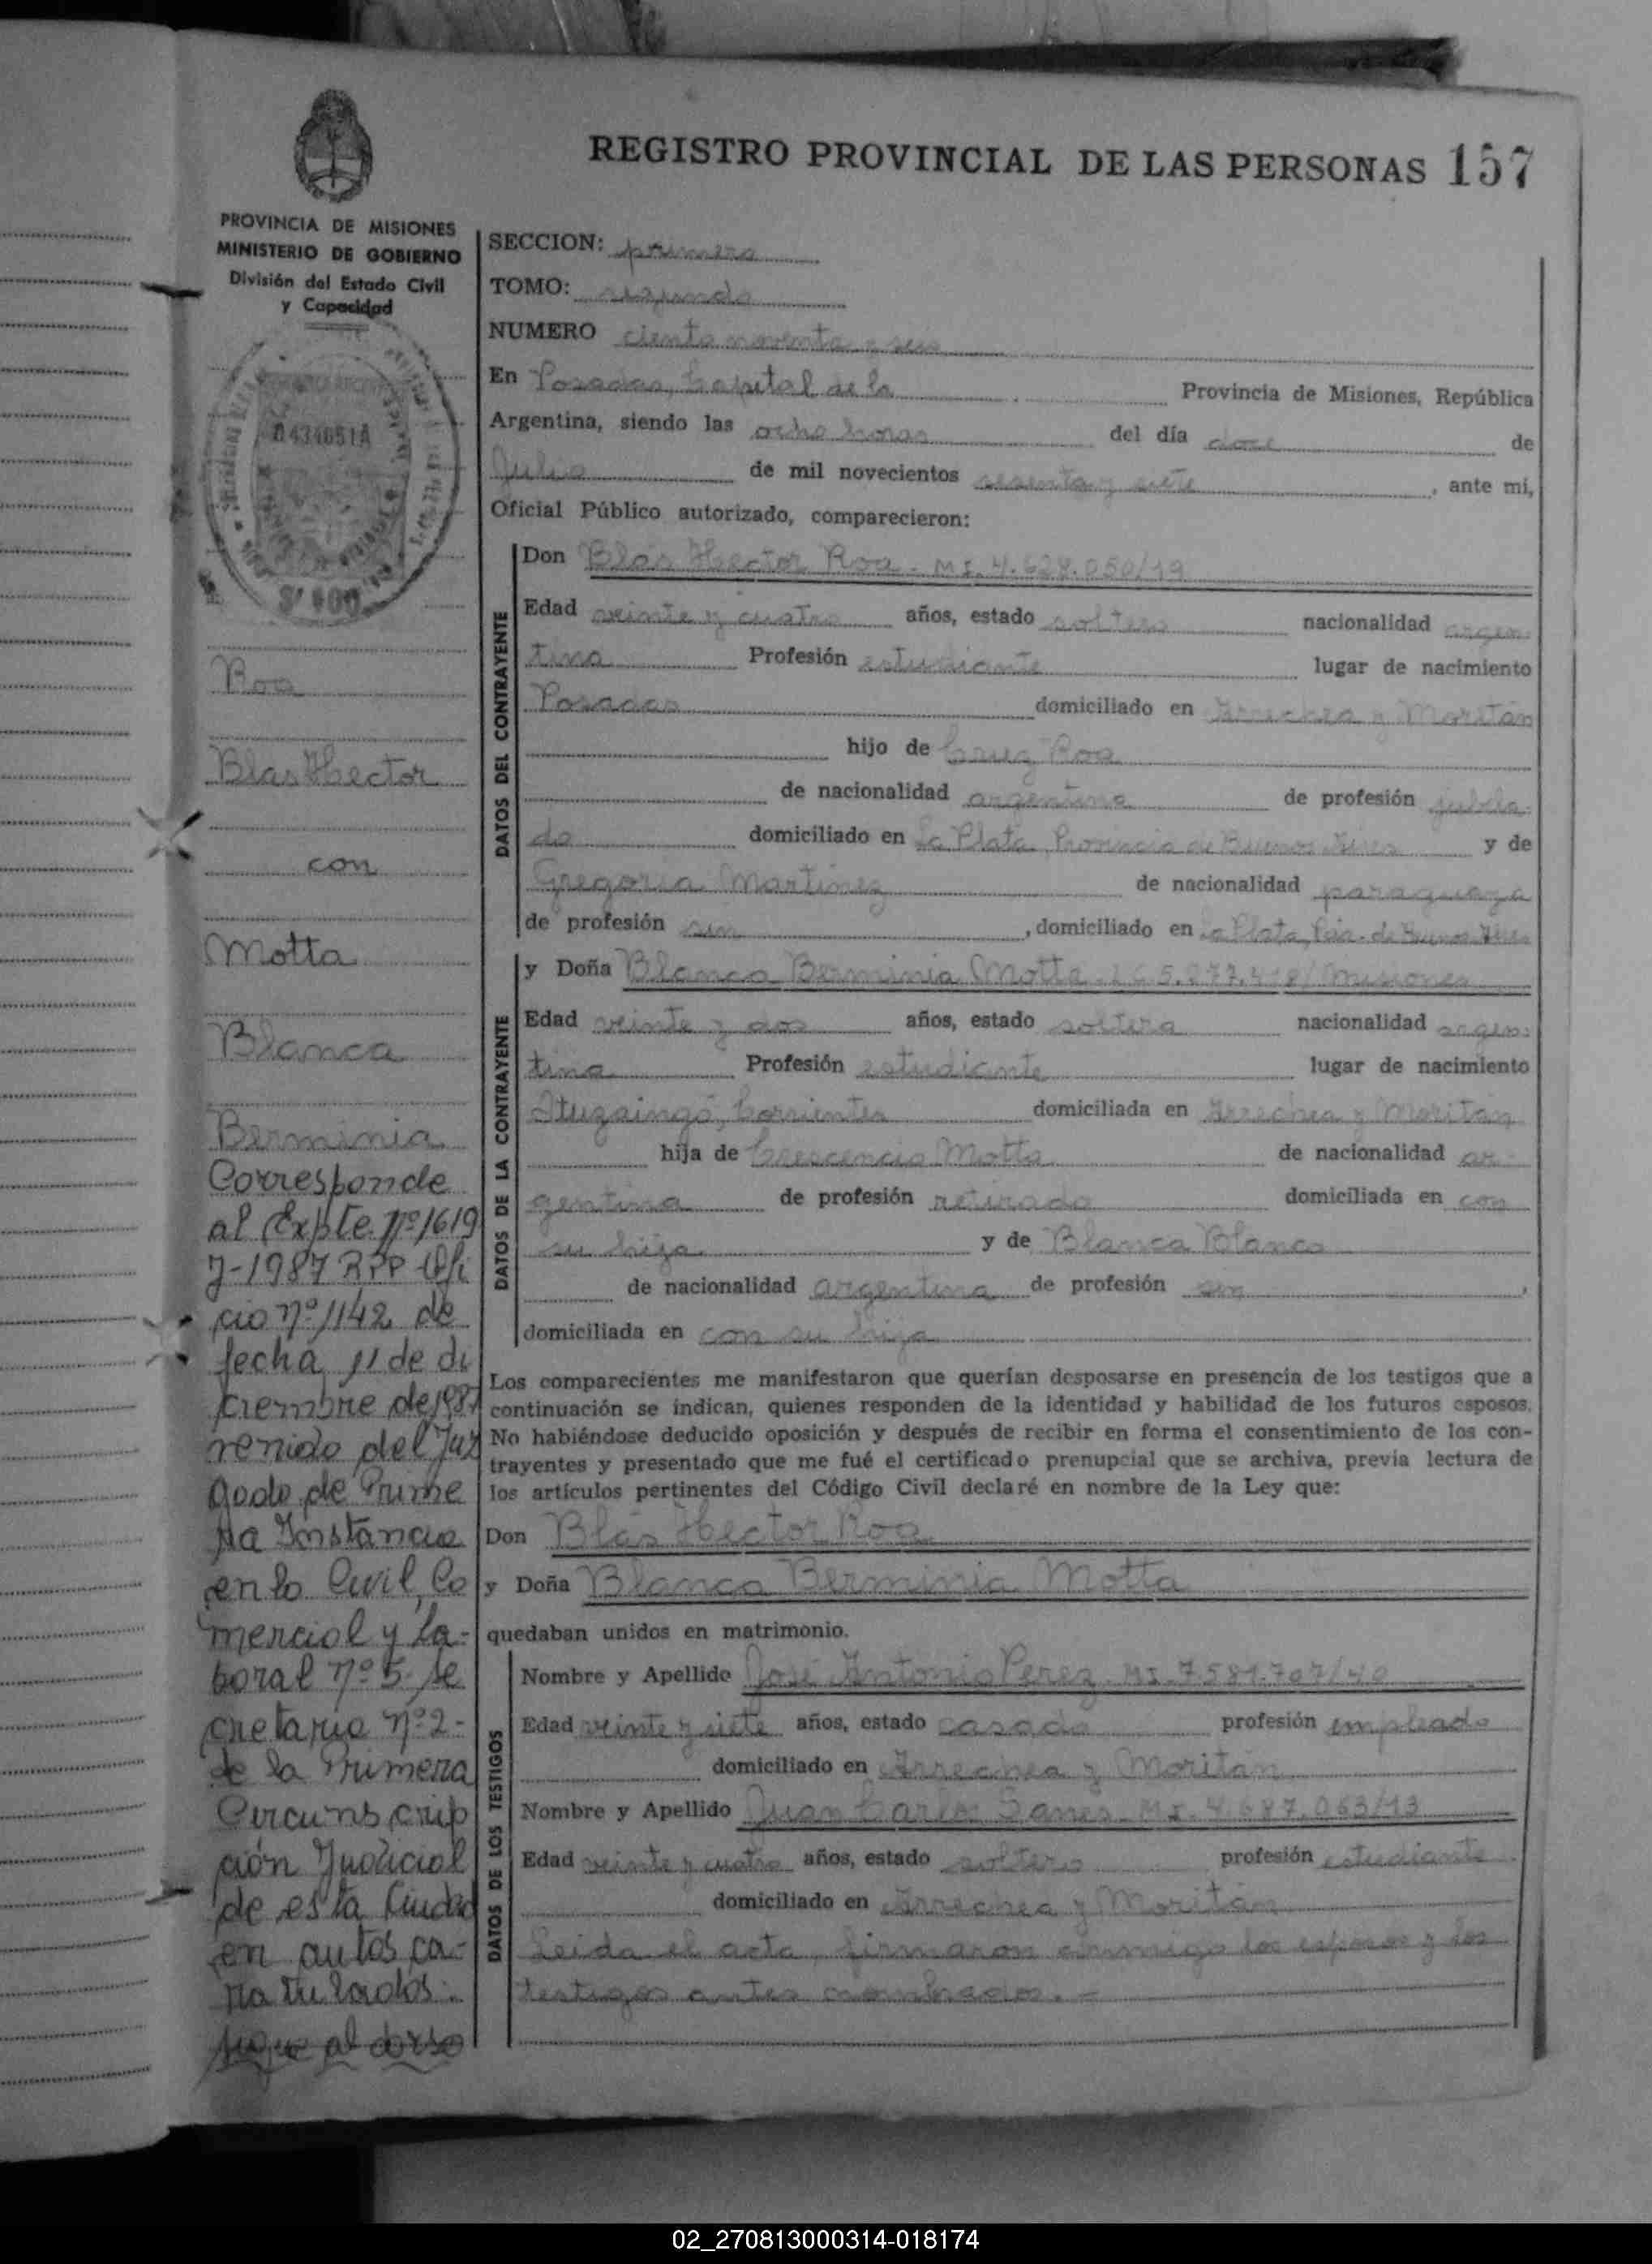 REGISTRO PROVINCIAL DE LAS PERSONAS 157
PROVINCIA DE MISIONES
MINISTERIO DE GOBIERNO
División del Estado Civil
y Capacidad
0434651A
$ 400
Roa
Blas Hector
con
Motta
Blanca
Berminia
Corresponde
al Expte. Nº 1619
J-1987 RPP Ofi
cio nº 1142 de
fecha 11 de di
ciembre de 1987
venido del Juz
gado de Prime
ra Instancia
en lo Civil, Co
mercial y La-
boral nº 5 Se
cretaria nº 2-
de la Primera
Circunscrip
ción Judicial
de esta Ciudad
en autos ca-
ratulados:
sigue al dorso
SECCION: primera
TOMO: segundo
NUMERO ciento noventa y seis
En Posadas, Capital de la Provincia de Misiones, República
Argentina, siendo las ocho horas del día doce de
Julio de mil novecientos sesenta y siete, ante mí,
Oficial Público autorizado, comparecieron:
DATOS DEL CONTRAYENTE
Don Blás Hector Roa - MI. 4.628.050/19
Edad veinte y cuatro años, estado soltero nacionalidad argen
tina Profesión estudiante lugar de nacimiento
Posadas domiciliado en Arrechea y Moritán
hijo de Cruz Roa
de nacionalidad argentina de profesión jubila-
do domiciliado en La Plata, Provincia de Buenos Aires y de
Gregoria Martínez de nacionalidad paraguaya
de profesión sin, domiciliado en La Plata, de Buenos Aires
DATOS DE LA CONTRAYENTE
y Doña Blanca Berminia Motta Misiones
Edad veinte y dos años, estado soltera nacionalidad argen-
tina Profesión estudiante lugar de nacimiento
Ituzaingó, Corrientes domiciliada en Arrechea y Moritán
hija de Crescencio Motta de nacionalidad ar-
gentina de profesión retirado domiciliada en con
su hija y de Blanca Blanco
de nacionalidad argentina de profesión sin,
domiciliada en con su hija
Los comparecientes me manifestaron que querían desposarse en presencia de los testigos que a
continuación se indican, quienes responden de la identidad y habilidad de los futuros esposos.
No habiéndose deducido oposición y después de recibir en forma el consentimiento de los con-
trayentes y presentado que me fué el certificado prenupcial que se archiva, previa lectura de
los artículos pertinentes del Código Civil declaré en nombre de la Ley que:
Don Blás Hector Roa
y Doña Blanca Berminia Motta
quedaban unidos en matrimonio.
DATOS DE LOS TESTIGOS
Nombre y Apellido José Antonio Perez - MI. 7.581.707/40
Edad veinte y siete años, estado casado profesión empleado
domiciliado en Arrechea y Moritán
Nombre y Apellido Juan Carlos Sanes - MI. 4.687.063/13
Edad veinte y cuatro años, estado soltero profesión estudiante
domiciliado en Arrechea y Moritán
Leída el acta, firmaron conmigo los esposos y los
testigos antes nombrados.-
02_270813000314-018174